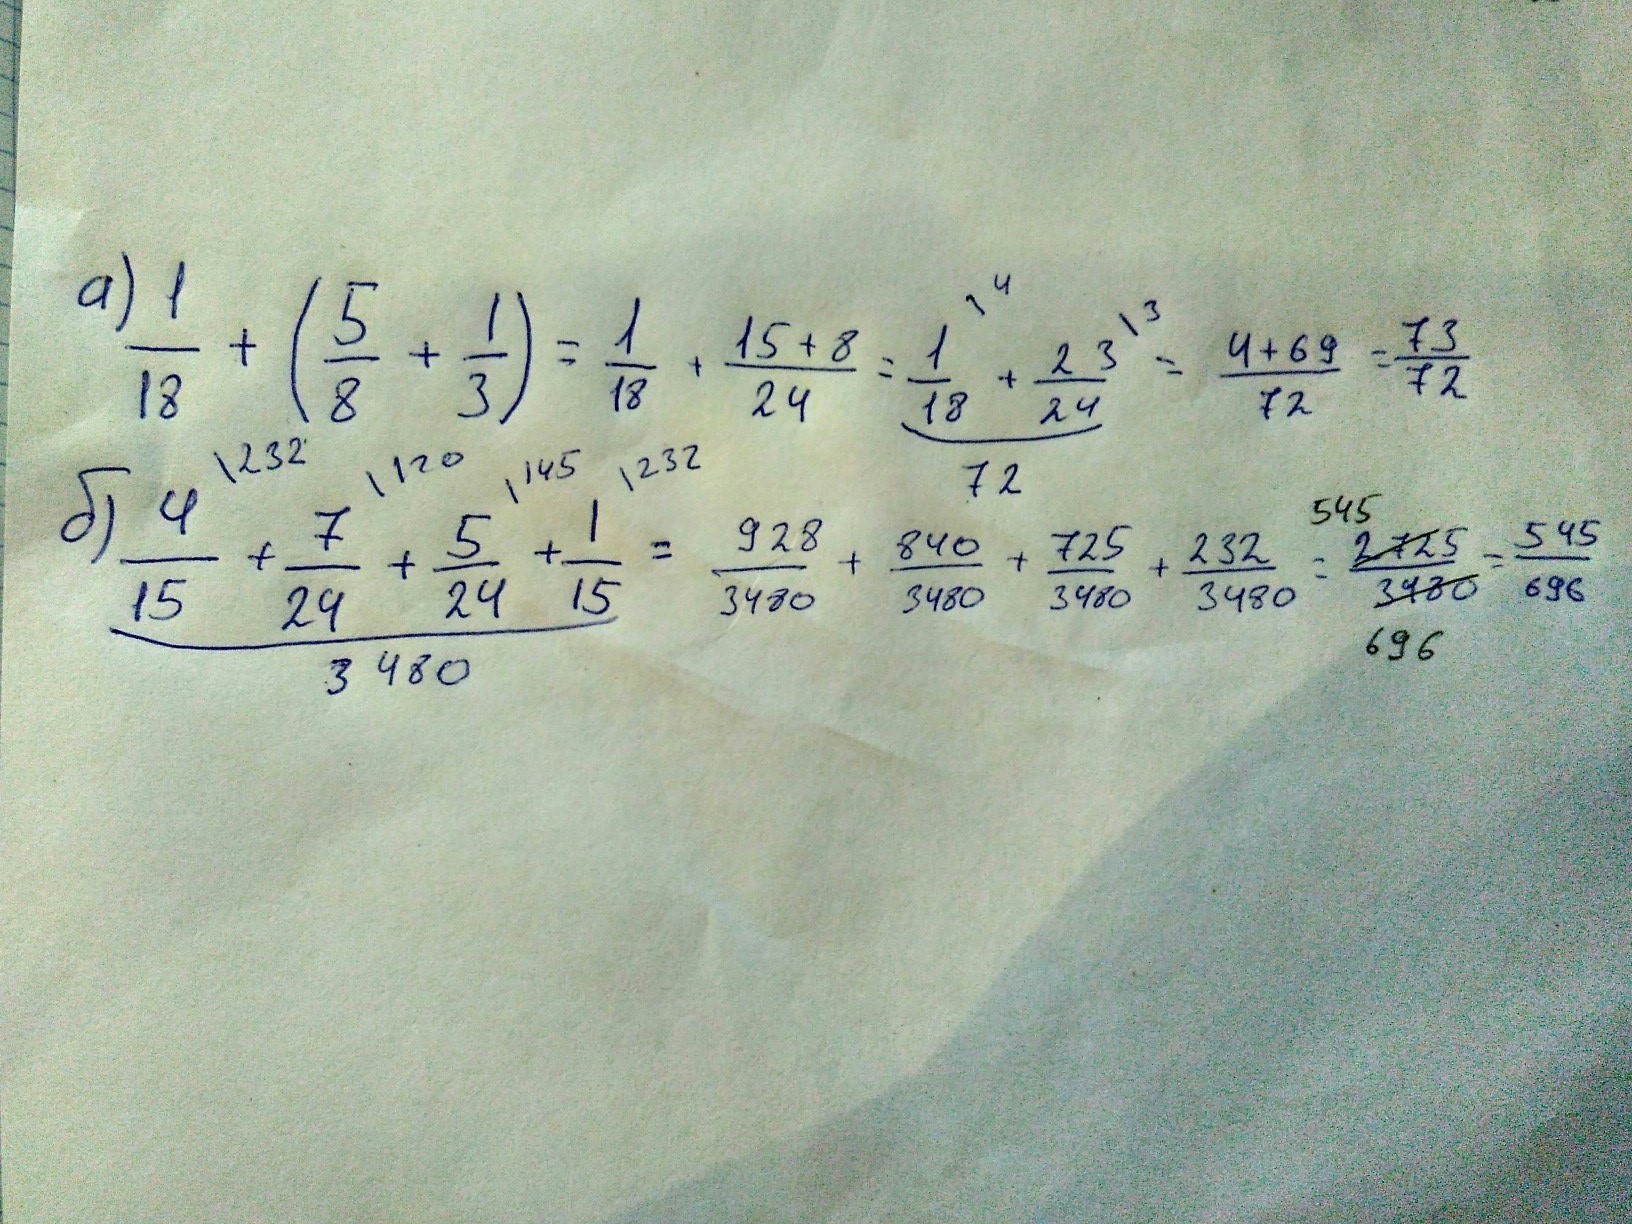 а) 1/18 + (5/8 + 1/3) = 1/18 + (15+8)/24 = 1/18 \4 + 23/24 \3 = (4+69)/72 = 73/72
72
б) 4/15 \232 + 7/24 \120 + 5/24 \145 + 1/15 \232 = 928/3480 + 840/3480 + 725/3480 + 232/3480 = 545 2725/3480 696 = 545/696
3480